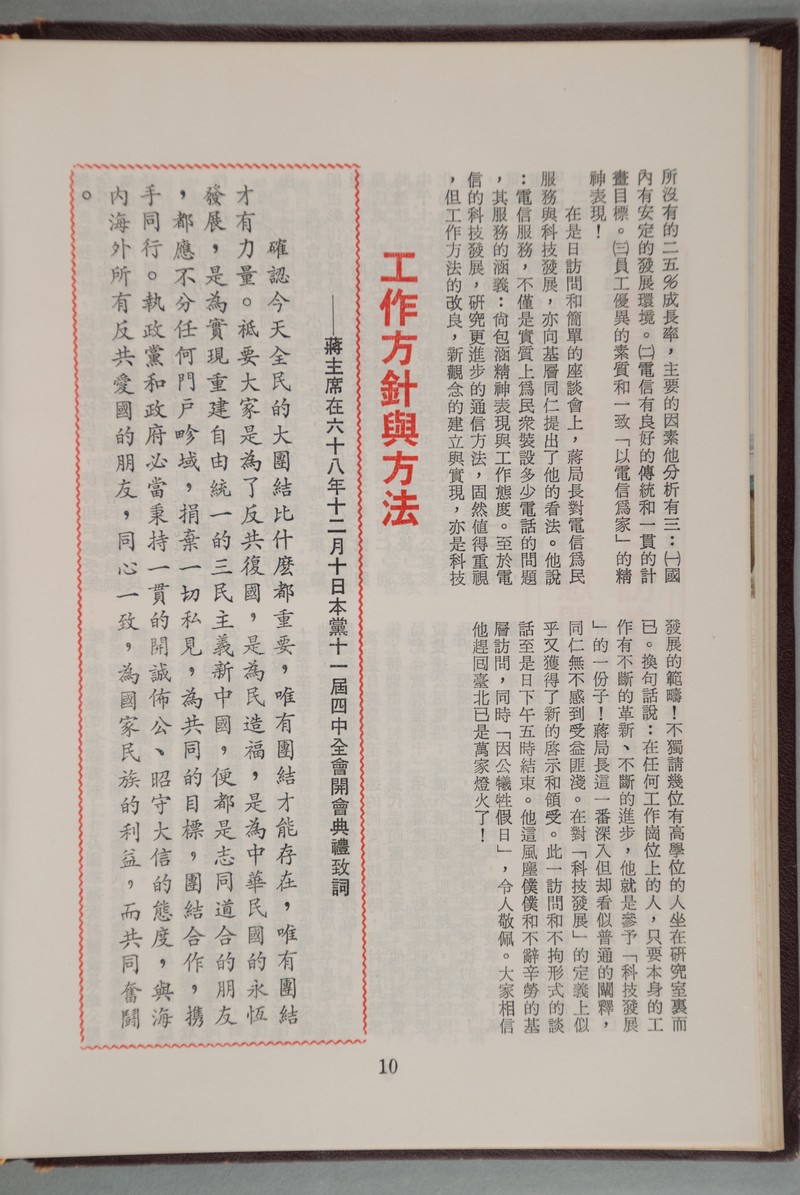 所沒有的二五％成長率，主要的因素他分析有三：㈠國
內有安定的發展環境。㈡電信有良好的傳統和一貫的計
畫目標。㈢員工優異的素質和一致「以電信爲家」的精
神表現！
在是日訪問和簡單的座談會上，蔣局長對電信爲民
服務與科技發展，亦向基層同仁提出了他的看法。他說
：電信服務，不僅是實質上爲民衆裝設多少電話的問題
，其服務的涵義：尙包涵精神表現與工作態度。至於電
信的科技發展，研究更進步的通信方法，固然值得重視
，但工作方法的改良，新觀念的建立與實現，亦是科技
發展的範疇！不獨請幾位有高學位的人坐在研究室裏而
已。換句話說：在任何工作崗位上的人，只要本身的工
作有不斷的革新、不斷的進步，他就是參予「科技發展
」的一份子！蔣局長這一番深入但却看似普通的闡釋，
同仁無不感到受益匪淺。在對「科技發展」的定義上似
乎又獲得了新的啓示和領受。此一訪問和不拘形式的談
話至是日下午五時結束。他這風塵僕僕和不辭辛勞的基
層訪問，同時「因公犧牲假日」，令人敬佩。大家相信
他趕回臺北已是萬家燈火了！
工作方針與方法
——蔣主席在六十八年十二月十日本黨十一屆四中全會開會典禮致詞
確認今天全民的大團結比什麼都重要，唯有團結才能存在，唯有團結
才有力量。祇要大家是為了反共復國，是為民造福，是為中華民國的永恆
發展，是為實現重建自由統一的三民主義新中國，便都是志同道合的朋友
，都應不分任何門戶畛域，捐棄一切私見，為共同的目標，團結合作，携
手同行。執政黨和政府必當秉持一貫的開誠佈公、昭守大信的態度，與海
內海外所有反共愛國的朋友，同心一致，為國家民族的利益，而共同奮鬪
。
10